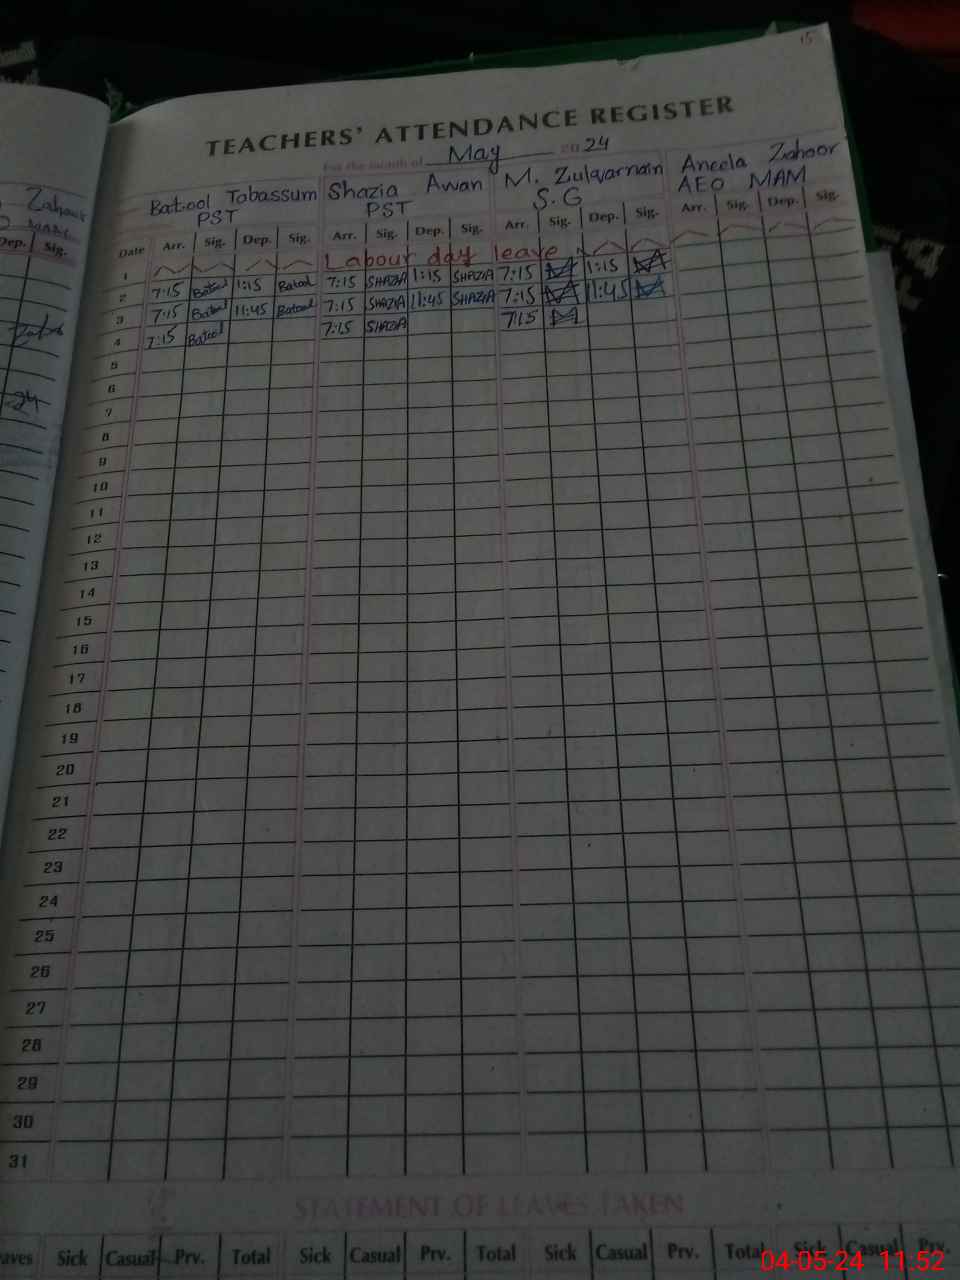 15
TEACHERS' ATTENDANCE REGISTER
For the month of May 2024
Batool Tabassum Shazia Awan M. Zulqarnain Aneela Zahoor
PST PST S.G AEO MAM
Date Arr. Sig. Dep. Sig. Arr. Sig. Dep. Sig. Arr. Sig. Dep. Sig. Arr. Sig. Dep. Sig.
1 Labour day leave
2 7:15 Batool 1:15 Batool 7:15 SHAZIA 1:15 SHAZIA 7:15 1:15
3 7:15 Batool 11:45 Batool 7:15 SHAZIA 11:45 SHAZIA 7:15 11:45
4 7:15 Batool 7:15 SHAZIA 7:15
5
6
7
8
9
10
11
12
13
14
15
16
17
18
19
20
21
22
23
24
25
26
27
28
29
30
31
STATEMENT OF LEAVES TAKEN
Sick Casual Prv. Total Sick Casual Prv. Total Sick Casual Prv. Total Sick Casual Prv.
Zahoor
Dep. Sig.
04-05-24 11:52